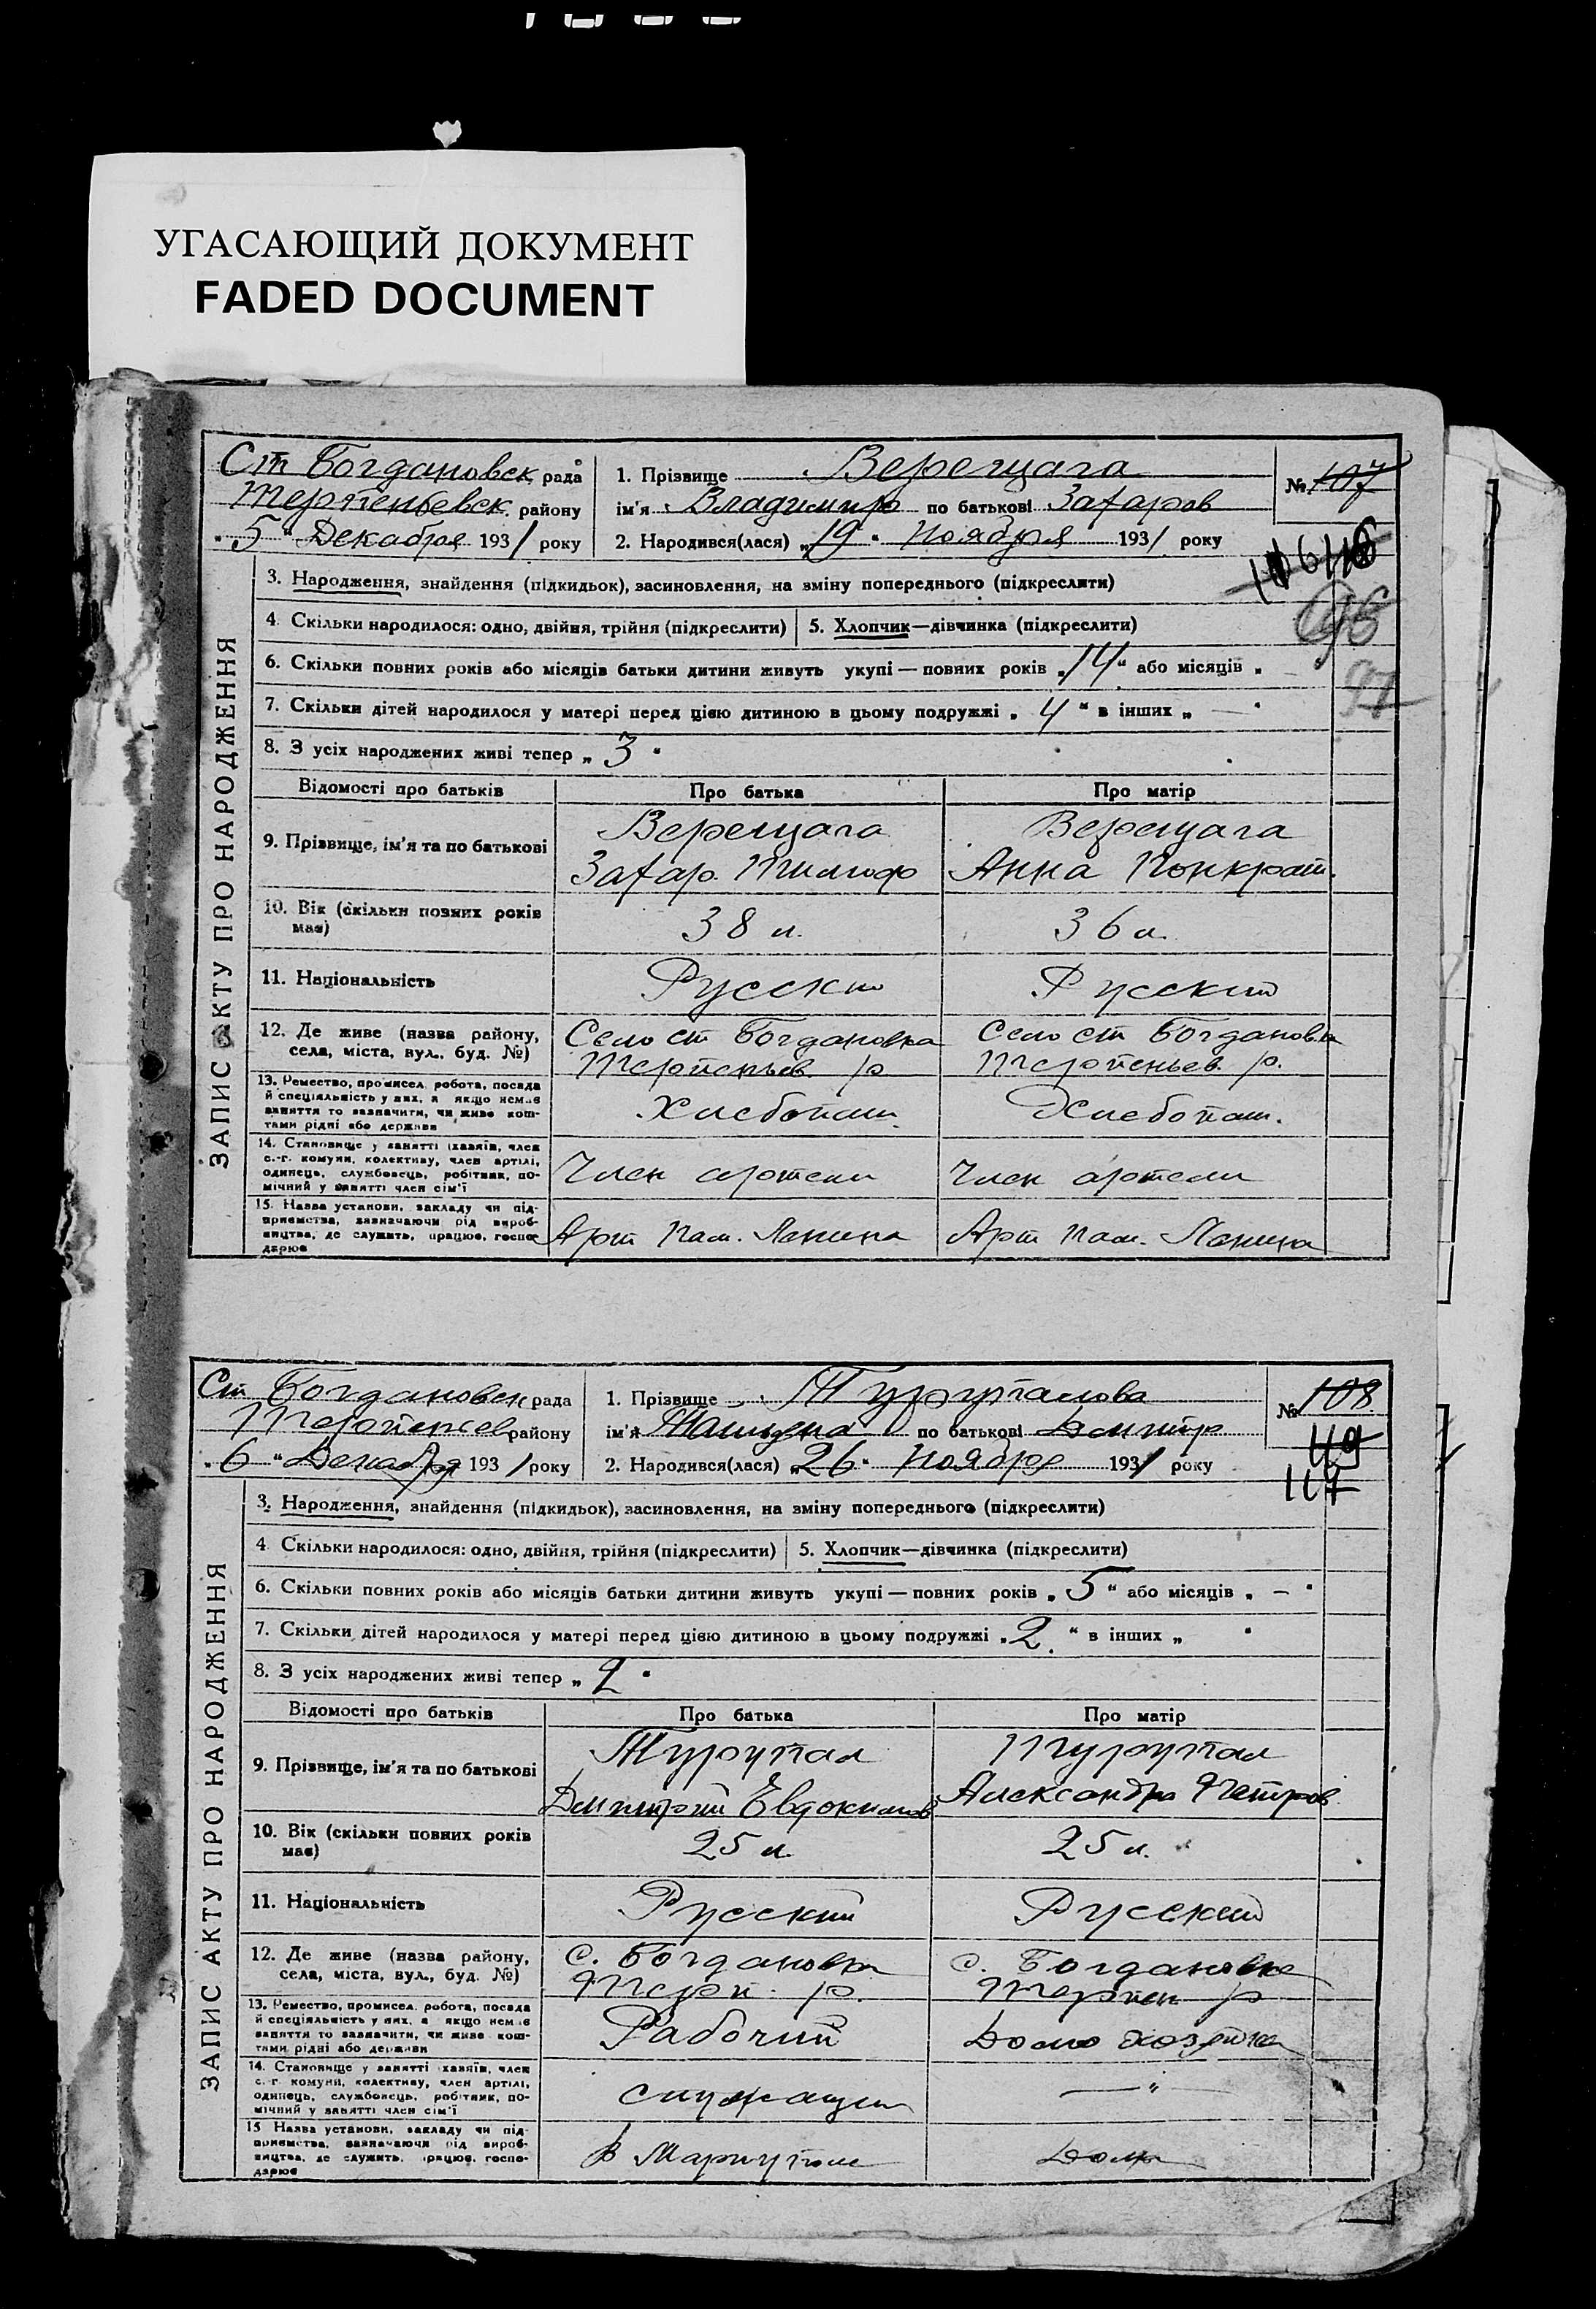 УГАСАЮЩИЙ ДОКУМЕНТ
FADED DOCUMENT
Ст Богдановск рада
Терпеньевск району
"5" Декабря 1931 року
1. Прізвище Верещага
ім'я Владимир по батькові Захаров
2. Народився(лася) "19" Ноября 1931 року
№ 107
96
97
ЗАПИС АКТУ ПРО НАРОДЖЕННЯ
3. Народження, знайдення (підкидьок), засиновлення, на зміну попереднього (підкреслити)
4. Скільки народилося: одно, двійня, трійня (підкреслити) 5. Хлопчик—дівчинка (підкреслити)
6. Скільки повних років або місяців батьки дитини живуть укупі — повних років „14" або місяців „
7. Скільки дітей народилося у матері перед цією дитиною в цьому подружжі „4" в інших „—"
8. З усіх народжених живі тепер „3"
Відомості про батьків Про батька Про матір
9. Прізвище, ім'я та по батькові
Верещага
Захар. Тимоф
Верещага
Анна Понкрат.
10. Вік (скільки повних років має)
38 л.
36 л.
11. Національність
Русски
Русский
12. Де живе (назва району,
села, міста, вул., буд. №)
Село ст Богдановка
Терпеньев. р
Село ст Богдановка
Терпеньев. р.
13. Ремество, промисел, робота, посада
й спеціяльність у них, а якщо немає
заняття то зазначити, чи живе кош-
тами рідні або держави
Хлебопаш.
Хлебопаш.
14. Становище у занятті (хазяїн, член
с.-г. комуни, колективу, член артілі,
одинець, службовець, робітник, по-
мічний у занятті член сім'ї
Член артели
Член артели
15. Назва установи, закладу чи під-
приємства, зазначаючи рід вироб-
ництва, де служить, працює, госпо-
дарює
Арт Пам. Ленина
Арт Пам. Ленина
Ст Богдановск рада
Терпеньев району
"6" Декабря 1931 року
1. Прізвище Турупалова
ім'я по батькові Дмитр
2. Народився(лася) „26" Ноября 1931 року
№ 108
119
117
ЗАПИС АКТУ ПРО НАРОДЖЕННЯ
3. Народження, знайдення (підкидьок), засиновлення, на зміну попереднього (підкреслити)
4 Скільки народилося: одно, двійня, трійня (підкреслити) 5. Хлопчик—дівчинка (підкреслити)
6. Скільки повних років або місяців батьки дитини живуть укупі — повних років „5" або місяців „—"
7. Скільки дітей народилося у матері перед цією дитиною в цьому подружжі „2" в інших „ "
8. З усіх народжених живі тепер „2"
Відомості про батьків Про батька Про матір
9. Прізвище, ім'я та по батькові
Турупал
Дмитрий Евдокимов
Турупал
Александра Петров
10. Вік (скільки повних років має)
25 л.
25 л.
11. Національність
Русский
Русский
12. Де живе (назва району,
села, міста, вул., буд. №)
с. Богдановка
Терп. р.
с. Богдановка
Терпен р
13. Ремество, промисел, робота, посада
й спеціяльність у них, а якщо немає
заняття то зазначити, чи живе кош-
тами рідні або держави
Рабочий
Домохозяйка
14. Становище у занятті (хазяїн, член
с.-г. комуни, колективу, член артілі,
одинець, службовець, робітник, по-
мічний у занятті член сім'ї
служащий
— " —
15 Назва установи, закладу чи під-
приємства, зазначаючи рід вироб-
ництва, де служить, працює, госпо-
дарює
В Мариуполе
Дома